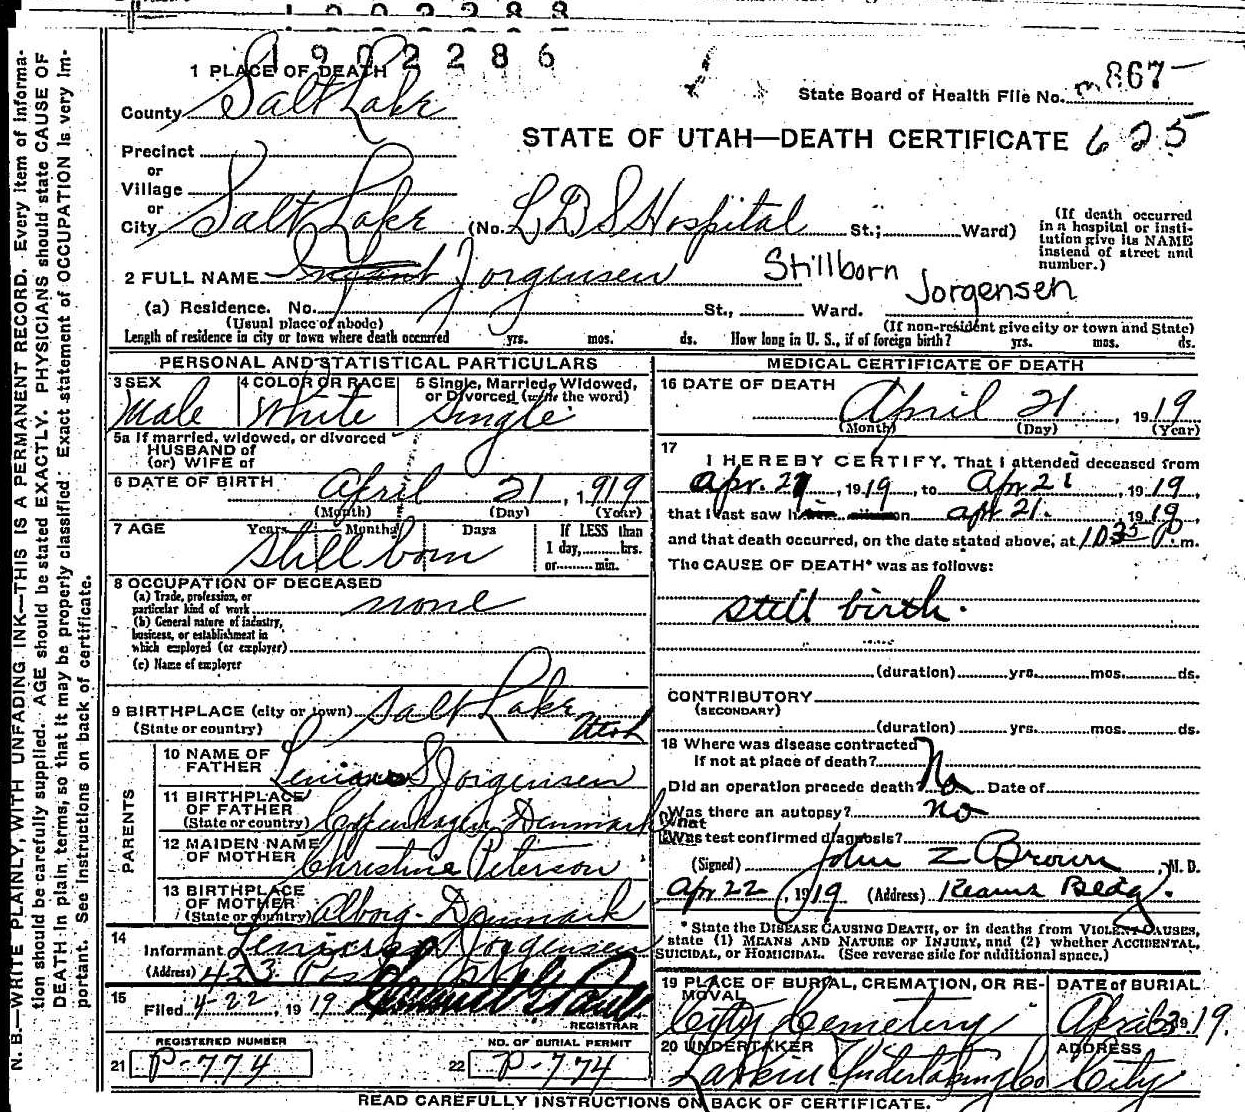 1902286
1 PLACE OF DEATH
County Salt Lake
State Board of Health File No. 867
STATE OF UTAH—DEATH CERTIFICATE 625
Precinct
or
Village
or
City Salt Lake (No. L D S Hospital St.; Ward)
(If death occurred
in a hospital or insti-
tution give its NAME
instead of street and
number.)
2 FULL NAME Infant Jorgensen Stillborn
Jorgensen
(a) Residence. No. St., Ward.
(Usual place of abode) (If non-resident give city or town and State)
Length of residence in city or town where death occurred yrs. mos. ds. How long in U. S., if of foreign birth? yrs. mos. ds.
PERSONAL AND STATISTICAL PARTICULARS
3 SEX
Male
4 COLOR OR RACE
White
5 Single, Married, Widowed,
or Divorced (write the word)
Single
5a If married, widowed, or divorced
HUSBAND of
(or) WIFE of
6 DATE OF BIRTH
April 21, 1919
(Month) (Day) (Year)
7 AGE Years Months Days
Still born
If LESS than
1 day, hrs.
or min.
8 OCCUPATION OF DECEASED
(a) Trade, profession, or
particular kind of work none
(b) General nature of industry,
business, or establishment in
which employed (or employer)
(c) Name of employer
9 BIRTHPLACE (city or town) Salt Lake
(State or country) Utah
PARENTS
10 NAME OF
FATHER S Jorgensen
11 BIRTHPLACE
OF FATHER
(State or country) Copenhagen Denmark
12 MAIDEN NAME
OF MOTHER Christine Peterson
13 BIRTHPLACE
OF MOTHER
(State or country) Alborg - Denmark
14
Informant Jorgensen
(Address) 423
15
Filed 4-22, 1919
REGISTRAR
REGISTERED NUMBER
21 P-774
NO. OF BURIAL PERMIT
22 P-774
MEDICAL CERTIFICATE OF DEATH
16 DATE OF DEATH
April 21, 1919
(Month) (Day) (Year)
17
I HEREBY CERTIFY, That I attended deceased from
Apr. 21, 1919, to Apr 21, 1919,
that I last saw h on apr 21. 1919
and that death occurred, on the date stated above, at 10 35 P m.
The CAUSE OF DEATH* was as follows:
still birth.
(duration) yrs. mos. ds.
CONTRIBUTORY
(SECONDARY)
(duration) yrs. mos. ds.
18 Where was disease contracted
If not at place of death?
Did an operation precede death? No Date of
Was there an autopsy? no
What
test confirmed diagnosis?
(Signed) John Z Brown, M. D.
Apr 22, 1919 (Address) Kearns Bldg.
* State the DISEASE CAUSING DEATH, or in deaths from VIOLENT CAUSES,
state (1) MEANS AND NATURE OF INJURY, and (2) whether ACCIDENTAL,
SUICIDAL, or HOMICIDAL. (See reverse side for additional space.)
19 PLACE OF BURIAL, CREMATION, OR RE-
MOVAL
City Cemetery
DATE of BURIAL
April 23 1919.
20 UNDERTAKER
Larkin Undertaking Co
ADDRESS
City
READ CAREFULLY INSTRUCTIONS ON BACK OF CERTIFICATE.
N. B.—WRITE PLAINLY, WITH UNFADING INK—THIS IS A PERMANENT RECORD. Every item of informa-
tion should be carefully supplied. AGE should be stated EXACTLY. PHYSICIANS should state CAUSE OF
DEATH in plain terms, so that it may be properly classified. Exact statement of OCCUPATION is very im-
portant. See instructions on back of certificate.